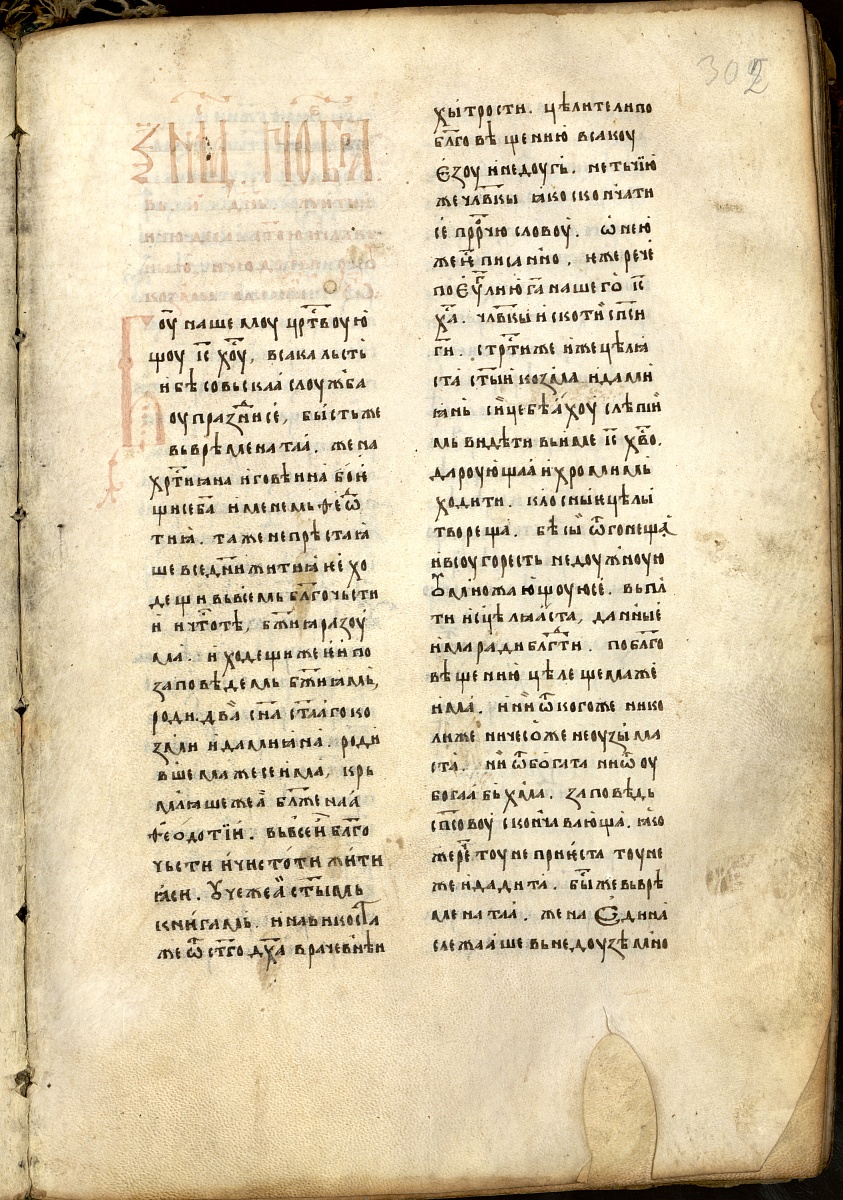 302
оу нашемоу црⷭ҇твоую
щоу іс҃ хо҃у, всака льсть
и бѣсовьскаа слоужба
оупразⷣнисе, бысть же
вь врѣмена таа. жена
хрⷭ҇тиꙗна и говѣина боꙗ
щисе ба҃ именемь ѳеѡⷣ
тиꙗ. таже не прѣстаꙗ
ше все днїи житиꙗ ее хо
дещи вь всемь блг҃очьсти
и и чⷭ҇тотѣ, бж҃иꙗ разоу
ма. и ходещи же еи по
заповѣдемь бж҃иꙗмь,
роди два сн҃а ст҃ааго ко
зми и дамиꙗна. роди
вшемаже се има, крь
млꙗшеже а҆ блж҃енаа
ѳеодотїи. вь всеи блг҃о
чьсти и чистоти жити
ꙗси. ꙋчеже а҆ ст҃ымь
книгамь. и навикоста
же ѿ ст҃го дх҃а врачевнѣи
хытрости. цѣлителипо
блг҃овѣщению всакоу
езоу и недоугь. нетьчїю
же чл҃вкы ꙗко скончати
се прⷪ҇рчю словоу. ѡ нею
же е҃ писанно. иже рече
по еѵⷢ҇лию га҃ нашего іс҃
ха҃. чл҃вкы и скоти сп҃си
ги. стрⷭ҇тиже иже цѣлꙗ
ста ст҃ыи козма и дами
ꙗнь сице бѣахоу слѣпїи
мь видѣти вь име іс҃ хв҃о.
дароующаа и хромимь
ходити. клосные цѣлы
твореща. бѣсы ѿгонеща
и всоу горесть недоужноую
ꙋмножающоуюсе. вь пл
ти исцѣлꙗаста, данные
има ради блгⷣти. по блг҃о
вѣщению цѣлещемаже
има. и ни ѿ когоже нико
лиже ничесоже не оузыма
ста. ни ѿ богата ни ѿ оу
богаа бьхма. заповѣдь
сп҃совоу скончавающа. ꙗко
же рече тоуне приꙗста тоуне
же и дадита. бы же вь врѣ
мена таа. жена едина
слежааше вь недоузѣ мно